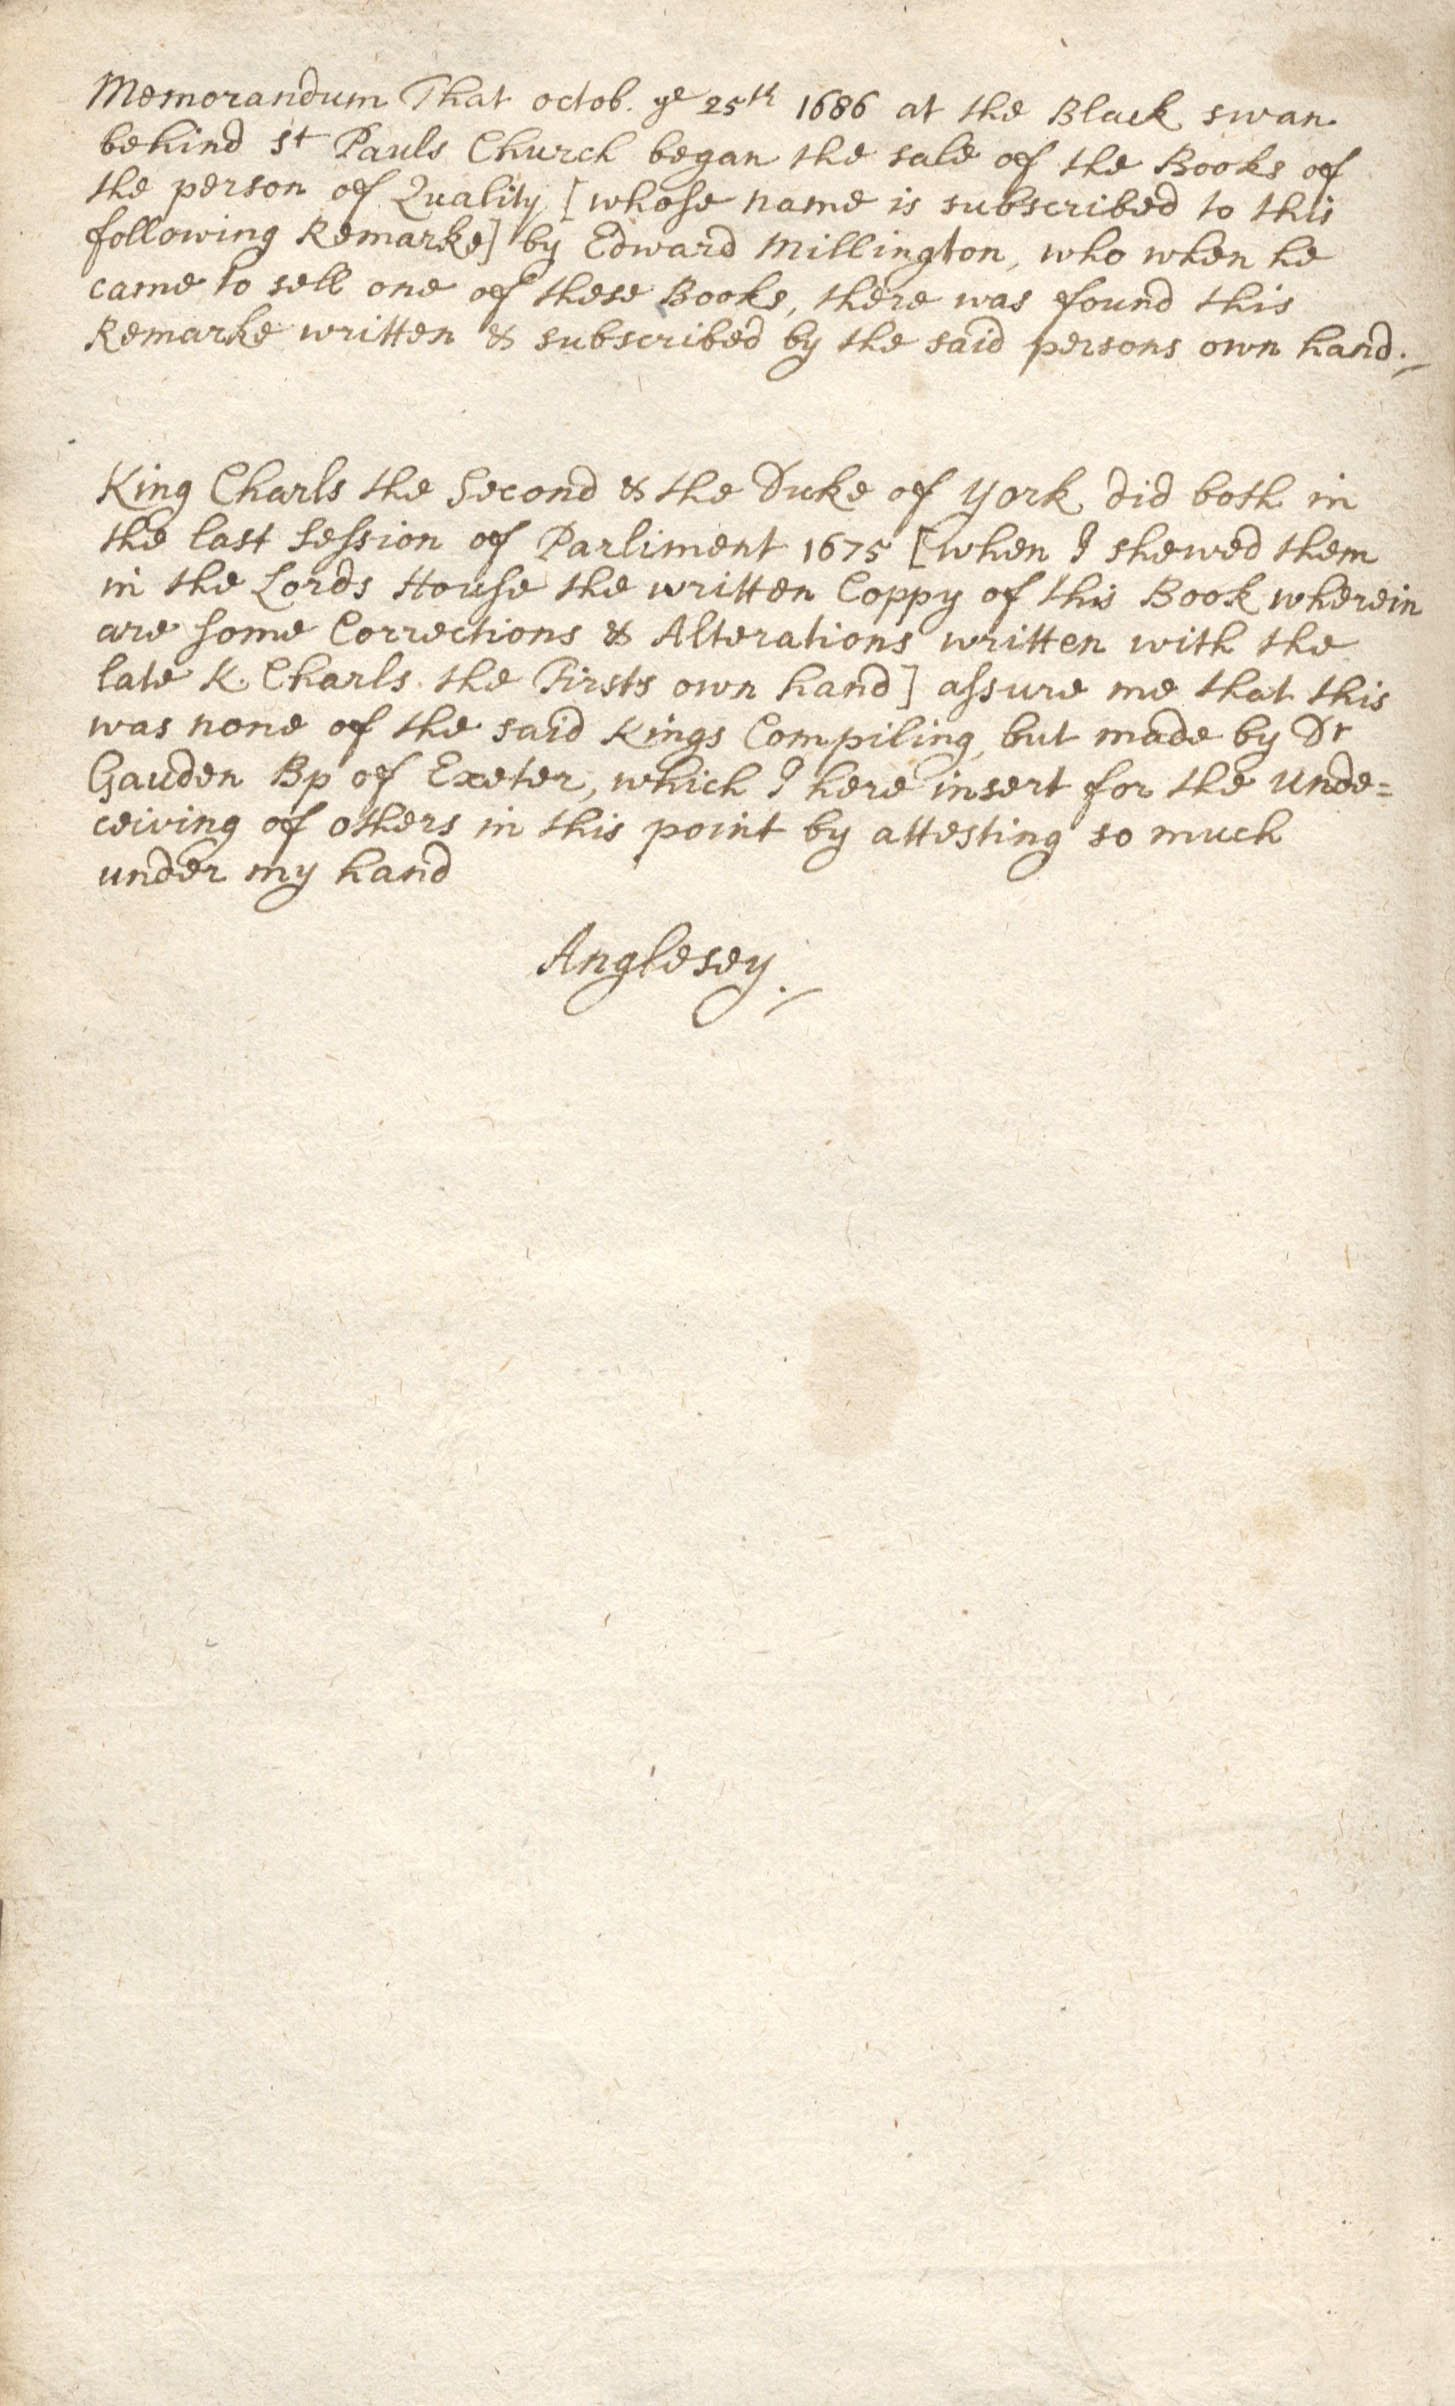 Memorandum That octob. ye 25th 1686 at the Black swan
behind St Pauls Church began the sale of the Books of
the person of Quality [whose name is subscribed to this
following Remarke] by Edward Millington, who when he
came to sell one of these Books, there was found this
Remarke written & subscribed by the said persons own hand./
King Charls the Second & the Duke of York did both in
the last Session of Parliment 1675 [when I shewed them
in the Lords House the written Coppy of this Book wherein
are some Corrections & Alterations written with the
late K. Charls the Firsts own hand] assure me that this
was none of the said Kings Compiling, but made by Dr
Gauden Bp of Exeter, which I here insert for the unde=
ceiving of others in this point by attesting so much
under my hand
Anglesey./